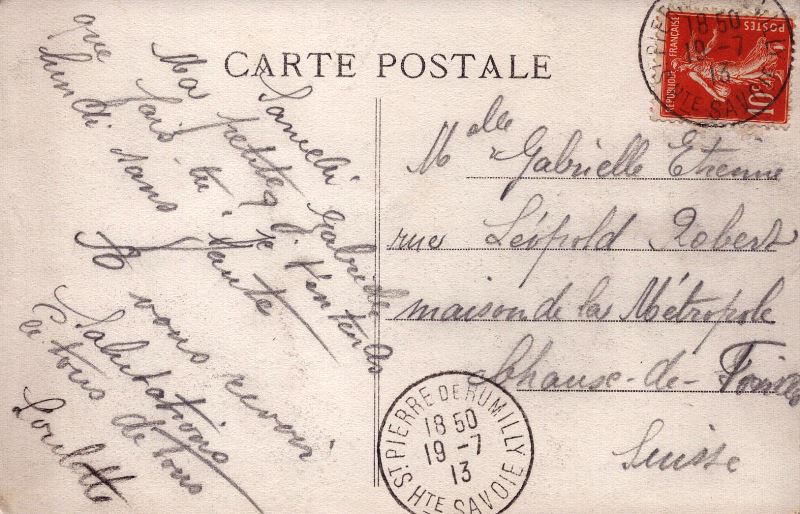 CARTE POSTALE
Samedi
Ma petite Gabrielle
que fais tu, je t'entends
lundi sans faute
A vous revoir
Salutations
à tous de tous
Loulotte
RÉPUBLIQUE FRANÇAISE
POSTES
10c
ST PIERRE DE RUMILLY
18 50
19-7
13
HTE SAVOIE
Melle Gabrielle Etienne
rue Léopold Robert
maison de la Métropole
Chaux-de-Fonds
Suisse
ST PIERRE DE RUMILLY
18 50
19-7
13
HTE SAVOIE